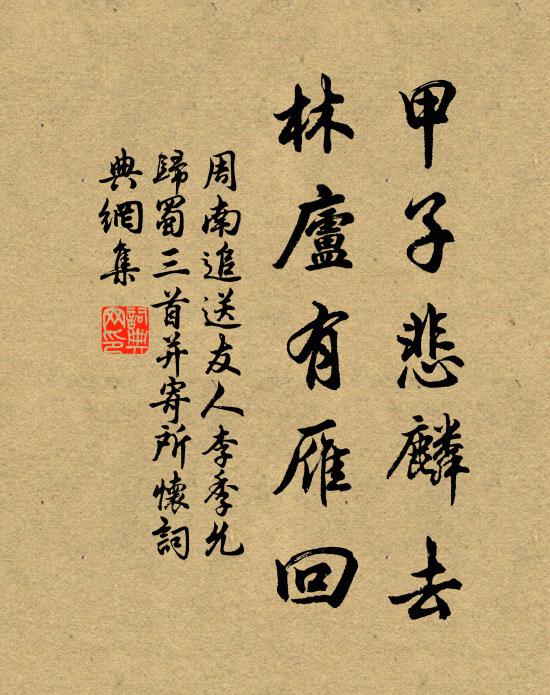 甲子悲麟去
林廬有雁回
周南追送友人李季允
歸蜀三首并寄所懷詞
典網集
詞典網印